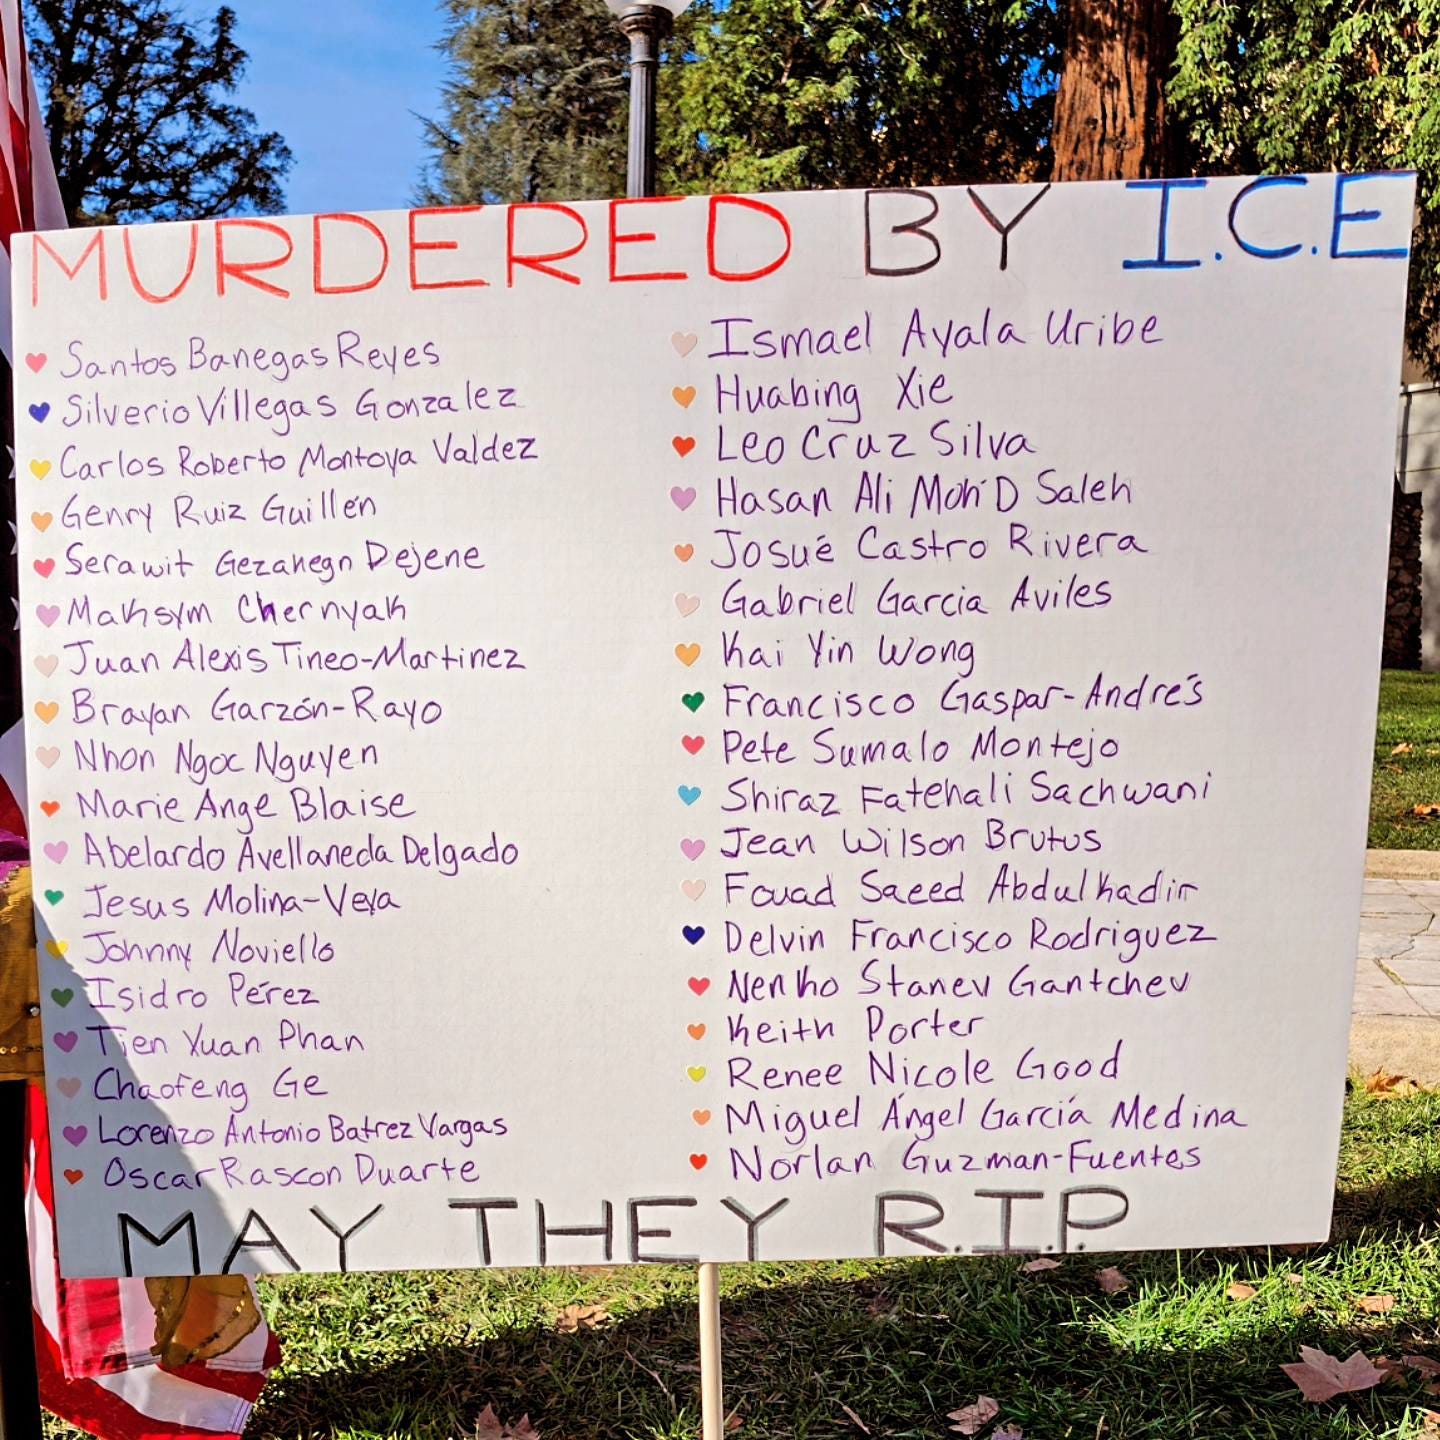 MURDERED BY I.C.E
Santos Banegas Reyes
Silverio Villegas Gonzalez
Carlos Roberto Montoya Valdez
Genry Ruiz Guillén
Serawit Gezahegn Dejene
Maksym Chernyak
Juan Alexis Tineo-Martinez
Brayan Garzón-Rayo
Nhon Ngoc Nguyen
Marie Ange Blaise
Abelardo Avellaneda Delgado
Jesus Molina-Veya
Johnny Noviello
Isidro Pérez
Tien Xuan Phan
Chaofeng Ge
Lorenzo Antonio Batrez Vargas
Oscar Rascon Duarte
Ismael Ayala Uribe
Huabing Xie
Leo Cruz Silva
Hasan Ali Moh'D Saleh
Josué Castro Rivera
Gabriel Garcia Aviles
Kai Yin Wong
Francisco Gaspar-Andrés
Pete Sumalo Montejo
Shiraz Fatehali Sachwani
Jean Wilson Brutus
Fouad Saeed Abdulkadir
Delvin Francisco Rodriguez
Nenko Stanev Gantchev
Keith Porter
Renee Nicole Good
Miguel Ángel García Medina
Norlan Guzman-Fuentes
MAY THEY R.I.P.